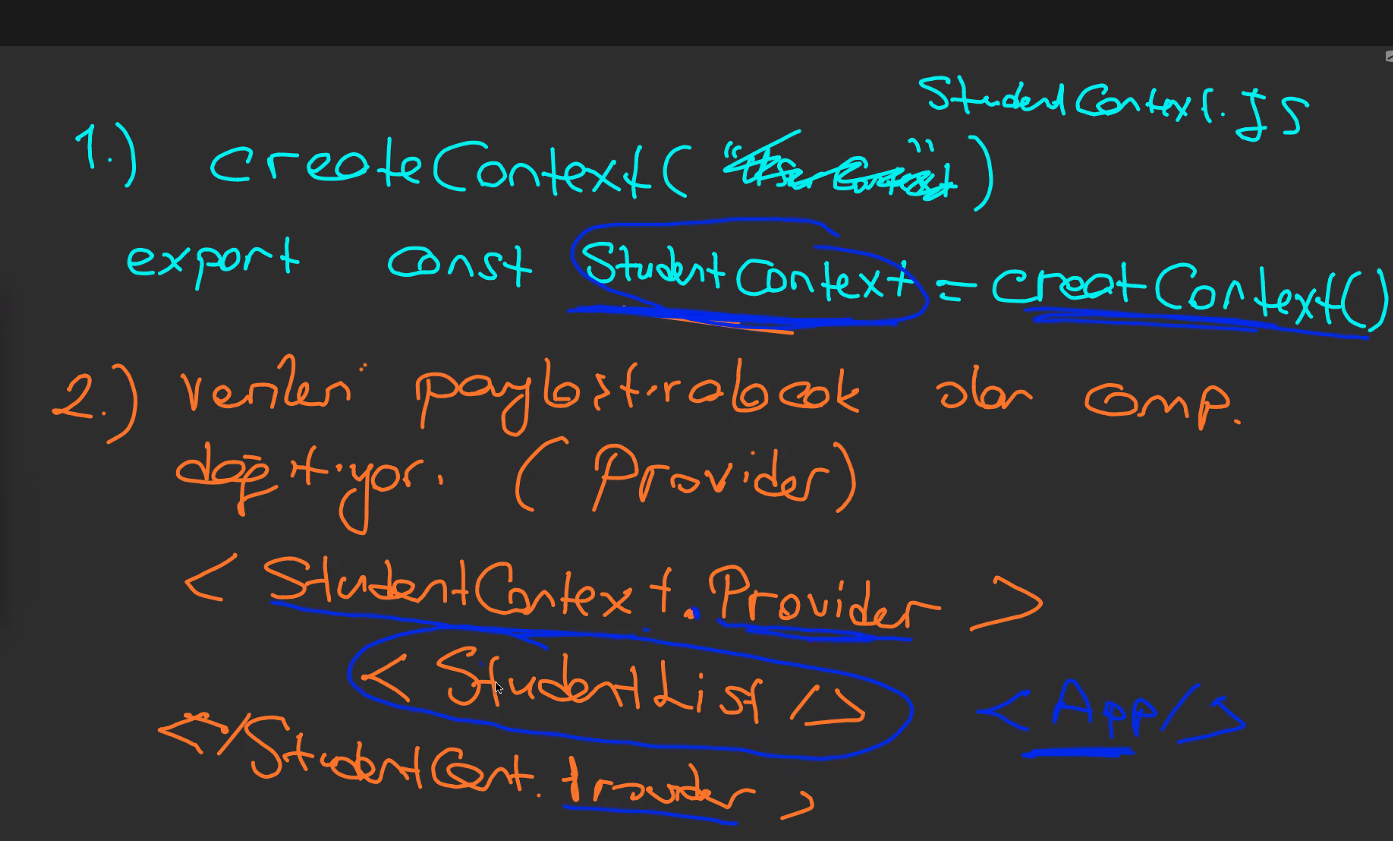 StudentContext.JS
1.) createContext(" ")
export const StudentContext = creatContext()
2.) verileri paylaştıralacak olan comp.
dağıtıyor. (Provider)
< StudentContext.Provider >
< StudentList />
</StudentCont.Provider >
< App/>